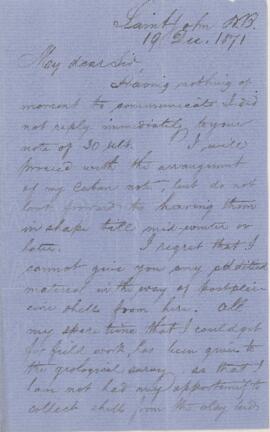 Saint John NB.
19 Dec. 1871
My dear Sir
Having nothing of
moment to communicate I did
not reply immediately to your
note of 30 ult. I will
proceed with the arrangement
of my Cuban notes but do not
look forward to having them
in shape till mid-winter or
later. I regret that I
cannot give you any additional
material in the way of postplio-
cene shells from here. All
my spare time that I could get
for field work has been given to
the geological survey so that I
have not had any opportunity to
collect shells from the clay beds